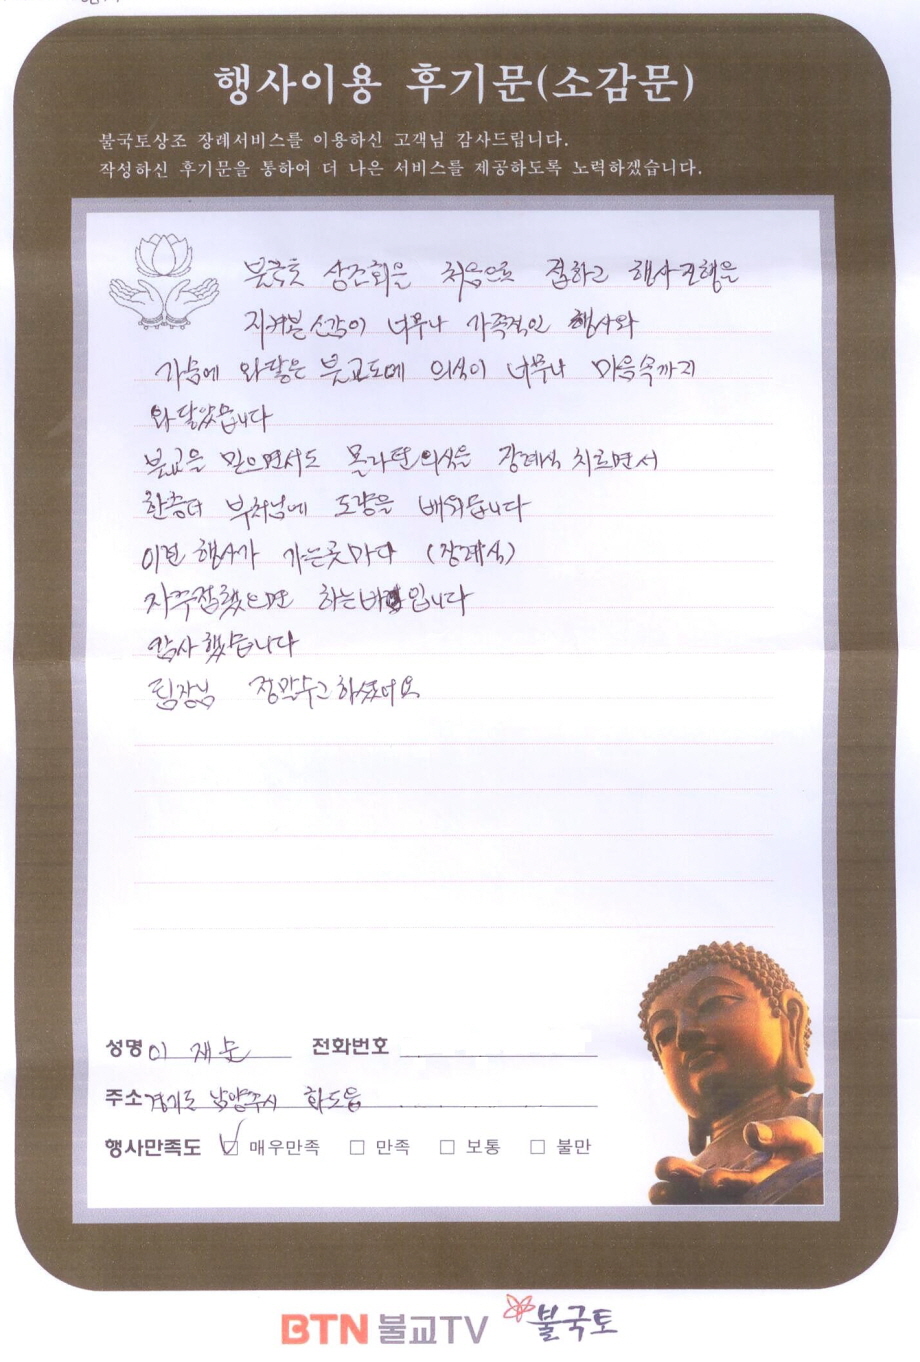 행사이용 후기문(소감문)
불국토상조 장례서비스를 이용하신 고객님 감사드립니다.
작성하신 후기문을 통하여 더 나은 서비스를 제공하도록 노력하겠습니다.
불국토 상조회을 처음으로 접하고 행사진행을
지켜본 순간이 너무나 가족적인 행사와
가슴에 와닿은 불교도에 의식이 너무나 마음속까지
와 닿았습니다
불교을 믿으면서도 몰라던 의식을 장례식 치르면서
한층더 부처님에 도량을 배워읍니다
이런 행사가 가는곳마다 (장례식)
자주접했으면 하는바램입니다
감사했습니다
팀장님 정말수고하셨어요
성명 이 재 전화번호
주소 경기도 남양주시 화도읍
행사만족도 ☑ 매우만족 □ 만족 □ 보통 □ 불만
BTN 불교TV 불국토